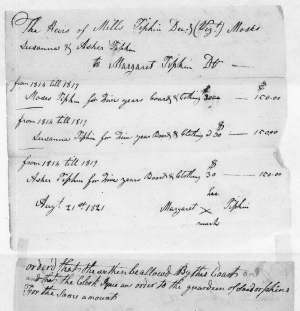 The Heirs of Mills Tiphin Dec'd (Viz) Moses
Susanna & Asher Tiphin
to Margaret Tiphin Dr
from 1814 till 1819
Moses Tiphin for Five years board & Clothing 30 — 150.00
from 1814 till 1819
Susanna Tiphin for Five year Board & Clothing $ 30 — 150.00
from 1814 till 1819
Asher Tiphin for Five years Board & Clothing 30 — 150.00
Augt. 21st 1821
her
Margaret X Tiphin
mark
orderd that the within be allowed By the Court and
that the Clerk Issue an order to the guardeen of Said orphans
For the Same amount